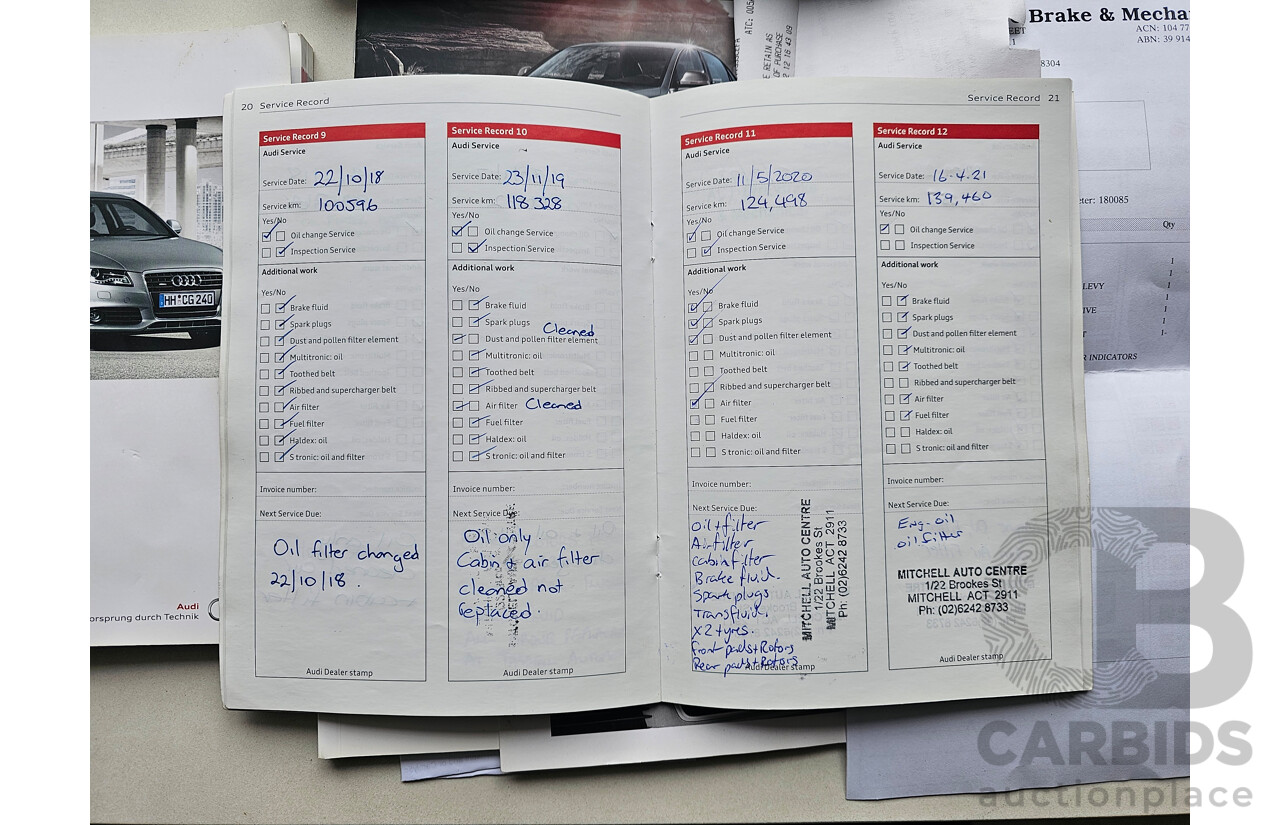 Brake & Mecha
ACN: 104 77
ABN: 39 914
8304
ATC: 005
E RETAIN AS
OF PURCHASE
12 16 43 09
eter: 180085
Qty
1
LEVY 1
IVE 1
1
1-
R INDICATORS
HH CG 240
Audi
orsprung durch Technik
20 Service Record
Service Record 9
Audi Service
Service Date: 22/10/18
Service km: 100596
Yes/No
Oil change Service
Inspection Service
Additional work
Yes/No
Brake fluid
Spark plugs
Dust and pollen filter element
Multitronic: oil
Toothed belt
Ribbed and supercharger belt
Air filter
Fuel filter
Haldex: oil
S tronic: oil and filter
Invoice number:
Next Service Due:
Oil filter changed
22/10/18.
Service Record 10
Audi Service
Service Date: 23/11/19
Service km: 118 328
Yes/No
Oil change Service
Inspection Service
Additional work
Yes/No
Brake fluid
Spark plugs
Cleaned
Dust and pollen filter element
Multitronic: oil
Toothed belt
Ribbed and supercharger belt
Air filter Cleaned
Fuel filter
Haldex: oil
S tronic: oil and filter
Invoice number:
Next Service Due:
Oil only.
Cabin + air filter
cleaned not
replaced.
Audi Dealer stamp
Audi Dealer stamp
Service Record 21
Service Record 11
Audi Service
Service Date: 11/5/2020
Service km: 124,498
Yes/No
Oil change Service
Inspection Service
Additional work
Yes/No
Brake fluid
Spark plugs
Dust and pollen filter element
Multitronic: oil
Toothed belt
Ribbed and supercharger belt
Air filter
Fuel filter
Haldex: oil
S tronic: oil and filter
Invoice number:
Next Service Due:
oil+filter
Airfilter
cabinfilter
Brake fluid.
Spark plugs
Transfluid.
x2 tyres.
front pads+Rotors
Rear pads+Rotors
Audi Dealer stamp
MITCHELL AUTO CENTRE
1/22 Brookes St
MITCHELL ACT 2911
Ph: (02)6242 8733
Service Record 12
Audi Service
Service Date: 16.4.21
Service km: 139,460
Yes/No
Oil change Service
Inspection Service
Additional work
Yes/No
Brake fluid
Spark plugs
Dust and pollen filter element
Multitronic: oil
Toothed belt
Ribbed and supercharger belt
Air filter
Fuel filter
Haldex: oil
S tronic: oil and filter
Invoice number:
Next Service Due:
Eng-oil
oil filter
MITCHELL AUTO CENTRE
1/22 Brookes St
MITCHELL ACT 2911
Ph: (02)6242 8733
Audi Dealer stamp
CB
CARBIDS
auctionplace